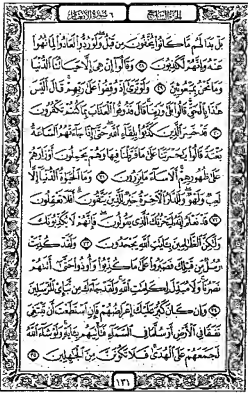 الجزء السابع ٦ سورة الأنعام
بَلْ بَدَا لَهُم مَّا كَانُوا۟ يُخْفُونَ مِن قَبْلُ وَلَوْ رُدُّوا۟ لَعَادُوا۟ لِمَا نُهُوا۟
عَنْهُ وَإِنَّهُمْ لَكَٰذِبُونَ ٢٨ وَقَالُوٓا۟ إِنْ هِىَ إِلَّا حَيَاتُنَا ٱلدُّنْيَا
وَمَا نَحْنُ بِمَبْعُوثِينَ ٢٩ وَلَوْ تَرَىٰٓ إِذْ وُقِفُوا۟ عَلَىٰ رَبِّهِمْ قَالَ أَلَيْسَ
هَٰذَا بِٱلْحَقِّ قَالُوا۟ بَلَىٰ وَرَبِّنَا قَالَ فَذُوقُوا۟ ٱلْعَذَابَ بِمَا كُنتُمْ تَكْفُرُونَ
٣٠ قَدْ خَسِرَ ٱلَّذِينَ كَذَّبُوا۟ بِلِقَآءِ ٱللَّهِ حَتَّىٰٓ إِذَا جَآءَتْهُمُ ٱلسَّاعَةُ
بَغْتَةً قَالُوا۟ يَٰحَسْرَتَنَا عَلَىٰ مَا فَرَّطْنَا فِيهَا وَهُمْ يَحْمِلُونَ أَوْزَارَهُمْ
عَلَىٰ ظُهُورِهِمْ أَلَا سَآءَ مَا يَزِرُونَ ٣١ وَمَا ٱلْحَيَوٰةُ ٱلدُّنْيَآ إِلَّا
لَعِبٌ وَلَهْوٌ وَلَلدَّارُ ٱلْءَاخِرَةُ خَيْرٌ لِّلَّذِينَ يَتَّقُونَ أَفَلَا تَعْقِلُونَ
٣٢ قَدْ نَعْلَمُ إِنَّهُۥ لَيَحْزُنُكَ ٱلَّذِى يَقُولُونَ فَإِنَّهُمْ لَا يُكَذِّبُونَكَ
وَلَٰكِنَّ ٱلظَّٰلِمِينَ بِـَٔايَٰتِ ٱللَّهِ يَجْحَدُونَ ٣٣ وَلَقَدْ كُذِّبَتْ
رُسُلٌ مِّن قَبْلِكَ فَصَبَرُوا۟ عَلَىٰ مَا كُذِّبُوا۟ وَأُوذُوا۟ حَتَّىٰٓ أَتَىٰهُمْ
نَصْرُنَا وَلَا مُبَدِّلَ لِكَلِمَٰتِ ٱللَّهِ وَلَقَدْ جَآءَكَ مِن نَّبَإِى۟ ٱلْمُرْسَلِينَ
٣٤ وَإِن كَانَ كَبُرَ عَلَيْكَ إِعْرَاضُهُمْ فَإِنِ ٱسْتَطَعْتَ أَن تَبْتَغِىَ
نَفَقًا فِى ٱلْأَرْضِ أَوْ سُلَّمًا فِى ٱلسَّمَآءِ فَتَأْتِيَهُم بِـَٔايَةٍ وَلَوْ شَآءَ ٱللَّهُ
لَجَمَعَهُمْ عَلَى ٱلْهُدَىٰ فَلَا تَكُونَنَّ مِنَ ٱلْجَٰهِلِينَ ٣٥
١٣١